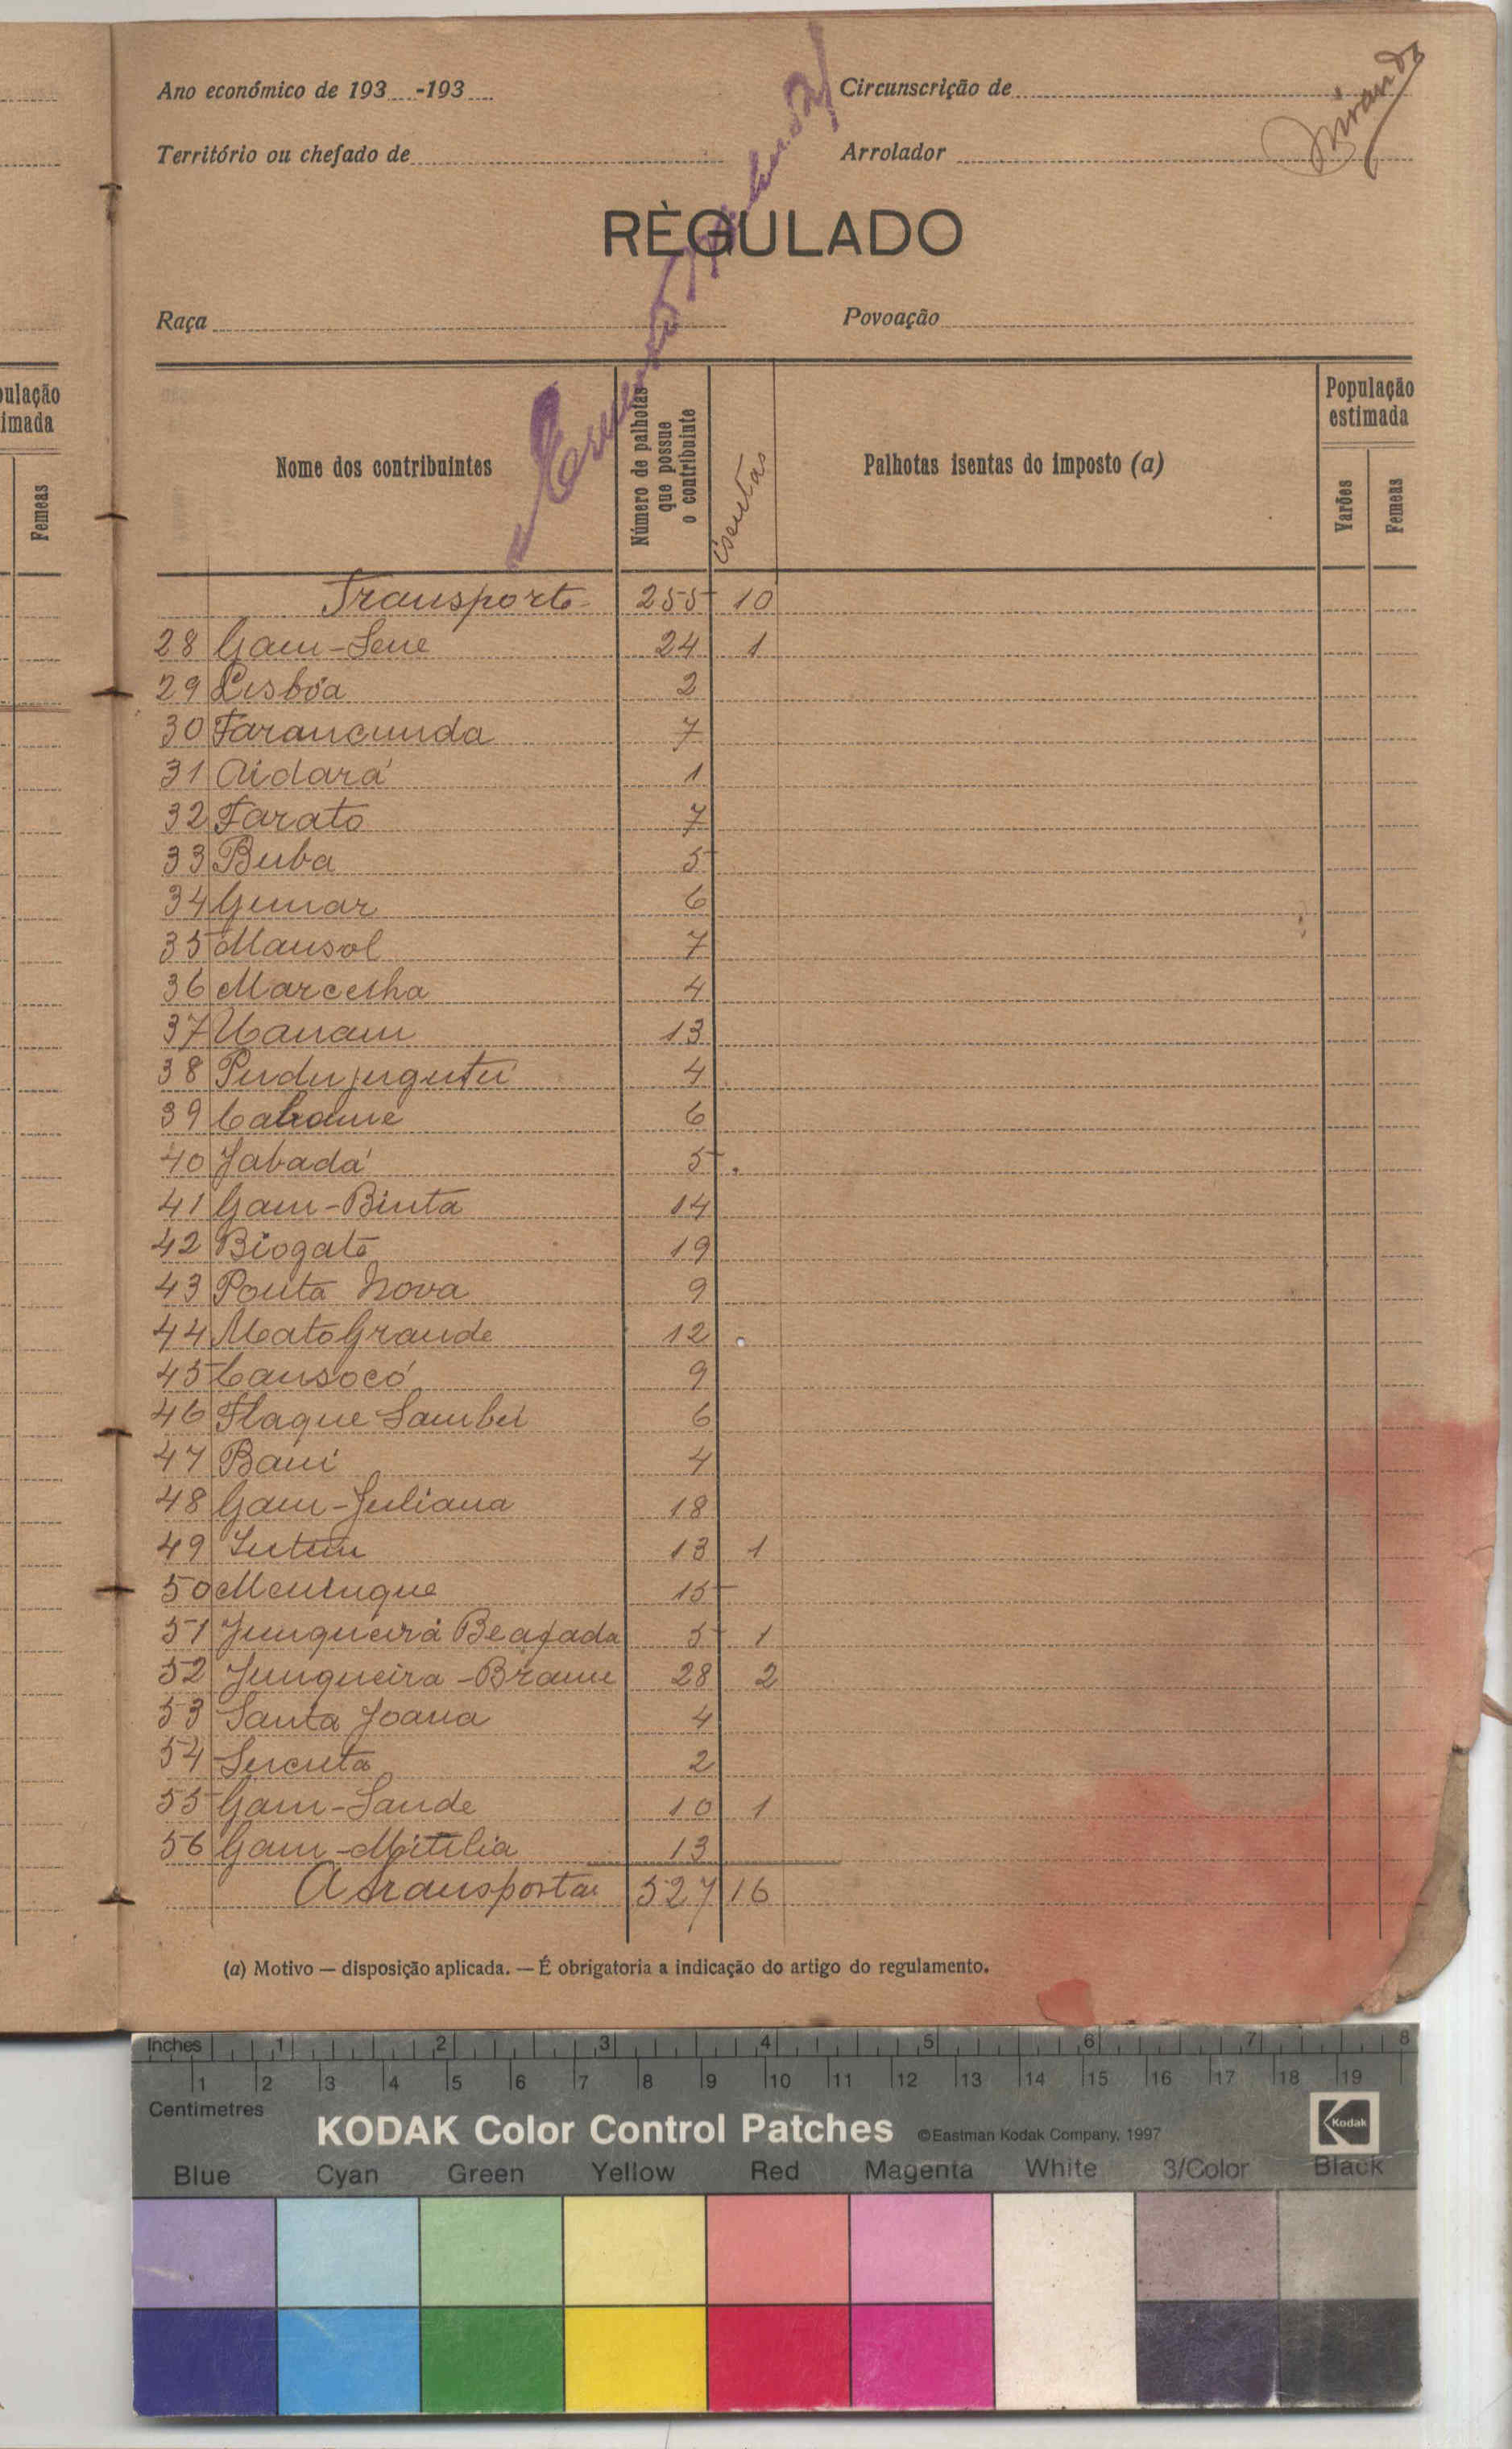 Ano económico de 193 -193
Circunscrição de
Território ou chefado de
Arrolador
Miranda
RÈGULADO
Raça
Povoação
ulação
imada
Femeas
Nome dos contribuintes
Número de palhotas que possue o contribuinte
isentas
Palhotas isentas do imposto (a)
População estimada
Varões
Femeas
Transporte 255 10
28 Gam-Sene 24 1
29 Lisbôa 2
30 Farancunda 7
31 Aidará 1
32 Farato 7
33 Buba 5
34 Gunar 6
35 Mansol 7
36 Marcelha 4
37 Uanam 13
38 4
39 6
40 Jabadá 5
41 Gam-Binta 14
42 Biogate 19
43 Ponta Nova 9
44 Mato Grande 12
45 Cansocó 9
46 Flaque Sambu 6
47 Bani 4
48 Gam-Juliana 18
49 13 1
50 Menengue 15
51 Junqueira Beafada 5 1
52 Junqueira-Brame 28 2
53 Santa Joana 4
54 Sucuta 2
55 Gam-Sande 10 1
56 Gam-Mitilia 13
A transportar 527 16
(a) Motivo — disposição aplicada. — É obrigatoria a indicação do artigo do regulamento.
Inches 1 2 3 4 5 6 7 8
1 2 3 4 5 6 7 8 9 10 11 12 13 14 15 16 17 18 19
Centimetres
KODAK Color Control Patches ©Eastman Kodak Company, 1997 Kodak
Blue Cyan Green Yellow Red Magenta White 3/Color Black